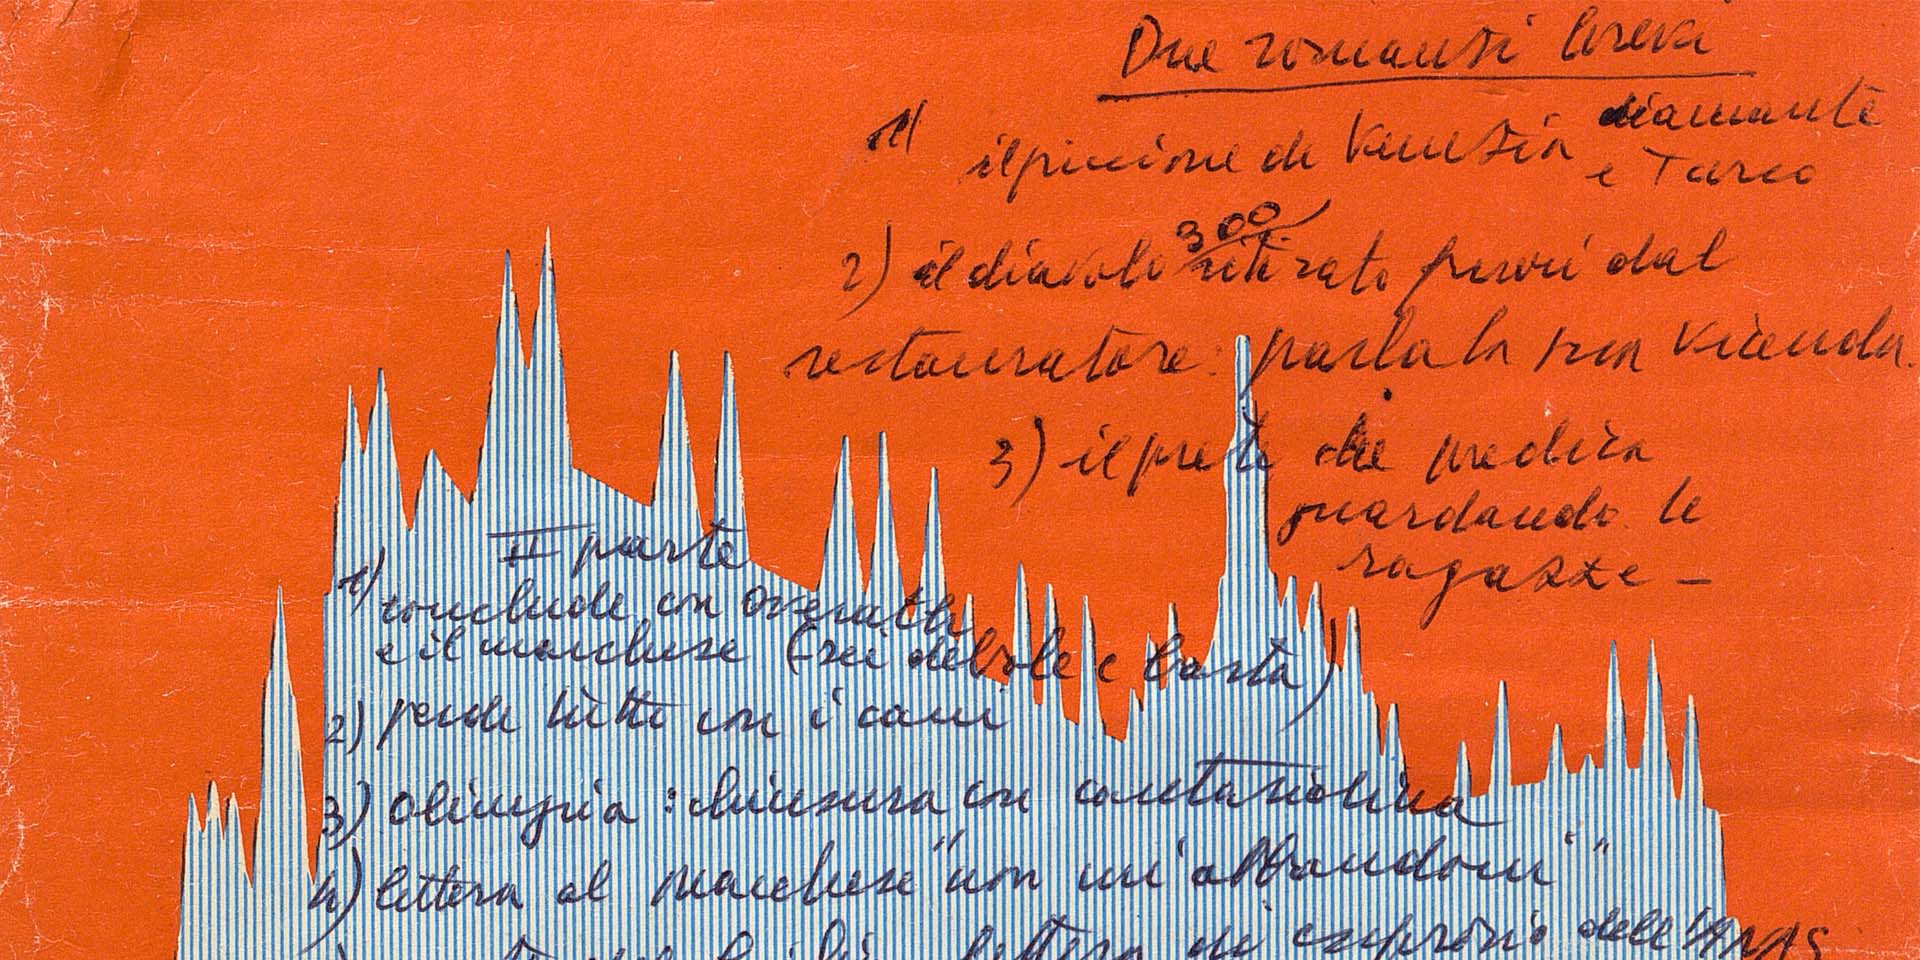 Due romanzi brevi
1) il piccione di Venezia diamante
e Turco
300
2) il diavolo ritirato fuori dal
restauratore: parla la sua vicenda.
3) il prete che predica
guardando le
ragazze –
II parte
1) conclude con
e il marchese (sei debole e basta)
2) perde tutto con i cani
3) Olimpia: chiusura con cartolina
4) lettera al marchese "non mi abbandoni"
lettera di esproprio dell'ANAS